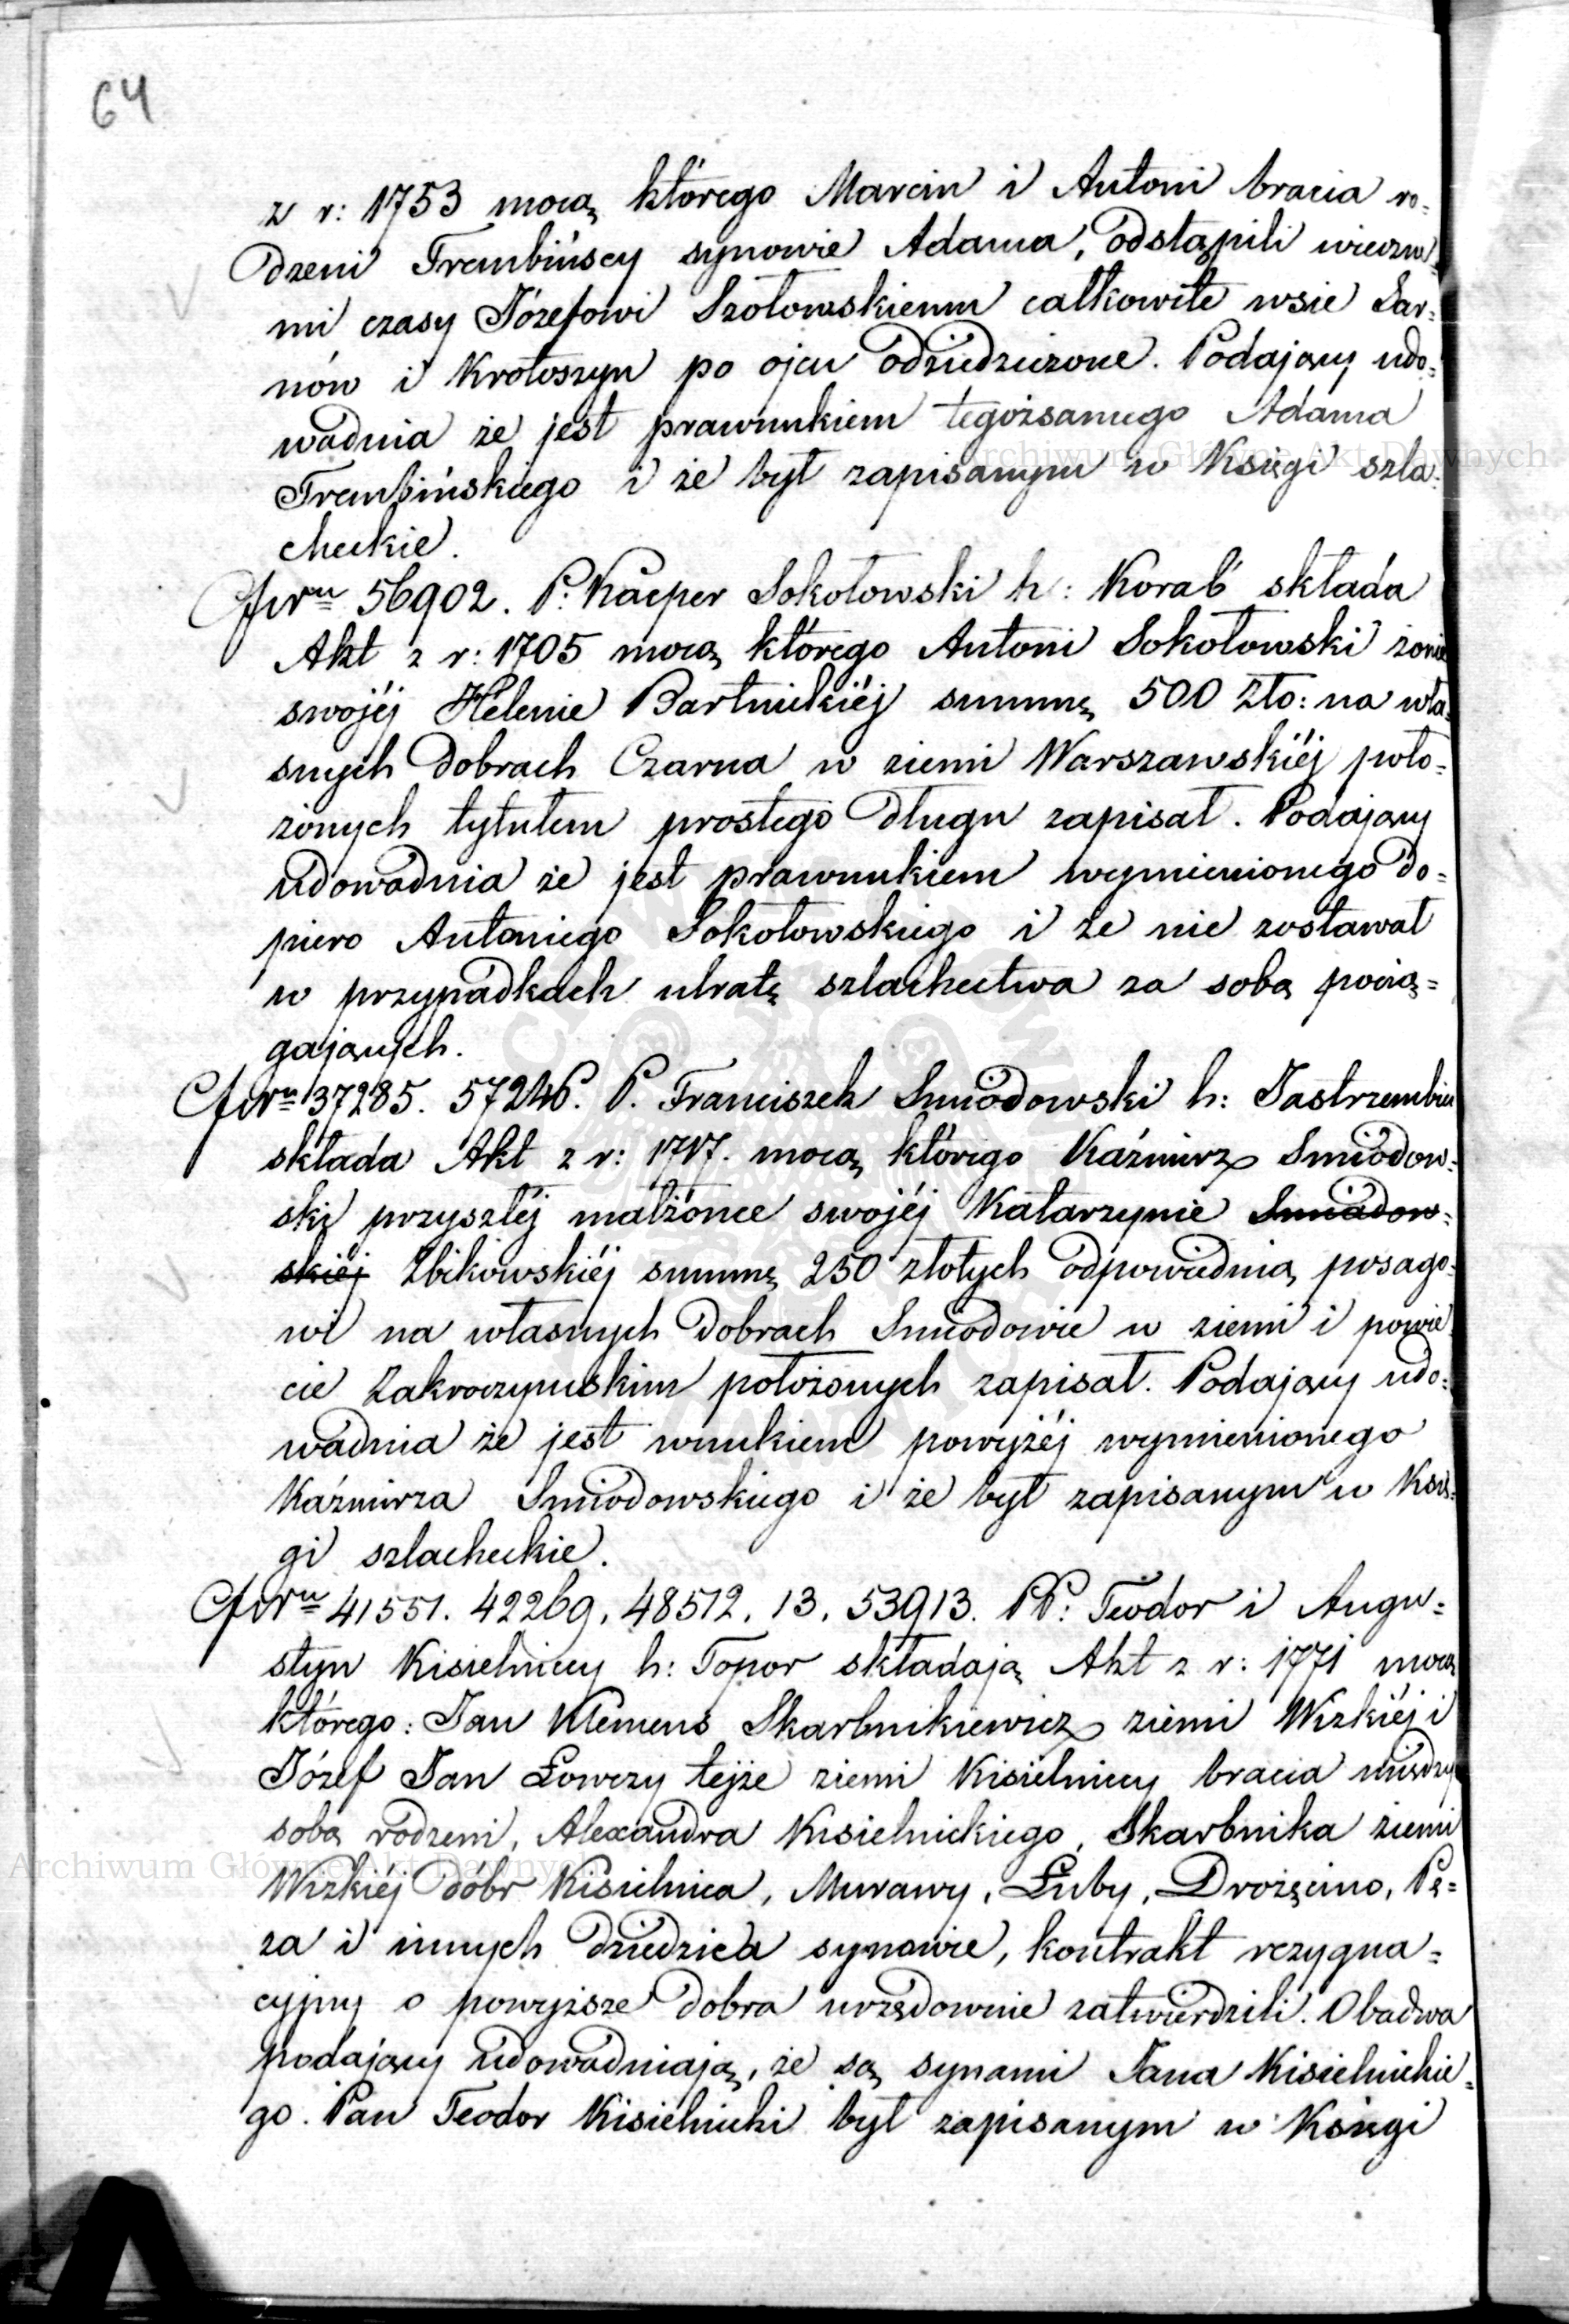 64
z r: 1753 mocą którego Marcin i Antoni bracia ro=
dzeni Trembińscy synowie Adama, odstąpili wieczne=
mi czasy Józefowi Szołowskiemu całkowite wsie Sar=
nów i Krotoszyn po ojcu odziedziczone. Podający udo=
wadnia że jest prawnukiem tegożsamego Adama
Trembińskiego i że był zapisanym w Księgi szla=
checkie.
56902. P. Kacper Sokołowski h: Korab składa
Akt z r: 1705 mocą którego Antoni Sokołowski żonie
swojéj Helenie Bartnickiéj summę 500 Zło: na wła=
snych dobrach Czarna w ziemi Warszawskiéj poło=
żonych tytułem prostego długu zapisał. Podający
udowadnia że jest prawnukiem wymienionego do=
piero Antoniego Sokołowskiego i że nie zostawał
w przypadkach utratę szlachectwa za sobą pocią=
gających.
37285. 57246. P. Franciszek Smiodowski h: Jastrzembiec
składa Akt z r: 1717. mocą którego Kaźmirz Smiodow=
ski przyszłéj małżonce swojéj Katarzynie Smiadow=
skiéj Zbikowskiéj summę 250 złotych odpowiednią posago=
wi na własnych dobrach Smiodowie w ziemi i powie
cie Zakroczymskim położonych zapisał. Podający udo=
wadnia że jest wnukiem powyżéj wymienionego
Kaźmirza Smiodowskiego i że był zapisanym w Księ=
gi szlacheckie.
41551. 42269. 48512. 13. 53913. PP: Teodor i Augu=
styn Kisielniccy h: Topor składają Akt z r: 1771 mocą
którego: Jan Klemens Skarbnikiewicz ziemi Wizkiéj i
Józef Jan Łowczy tejże ziemi Kisielniccy bracia między
sobą rodzeni, Alexandra Kisielnickiego, Skarbnika ziemi
Wizkiéj dóbr Kisielnica, Murawy, Łuby, Drożęcino, Pę=
za i innych dziedzica synowie, kontrakt rezygna=
cyjny o powyższe dobra urzędownie zatwierdzili. Obadwa
podający udowadniają, że są synami Jana Kisielnickie=
go. Pan Teodor Kisielnicki był zapisanym w Księgi
Archiwum Główne Akt Dawnych
Archiwum Główne Akt Dawnych